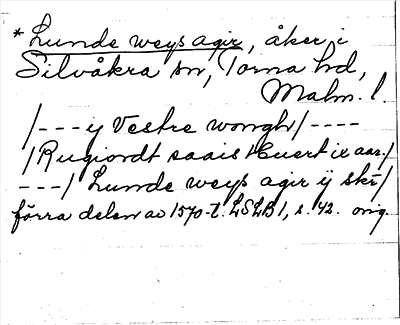 * Lunde weys agir, åker i
Silvåkra sn, Torna hd,
Malm. l.
/--- y Vestre wongh/ ----
/Rugiordt saais Huert ix aar/
---/ Lunde weys agir ij skr/
förra delen av 1570-t. LSLB 1, s. 42. orig.